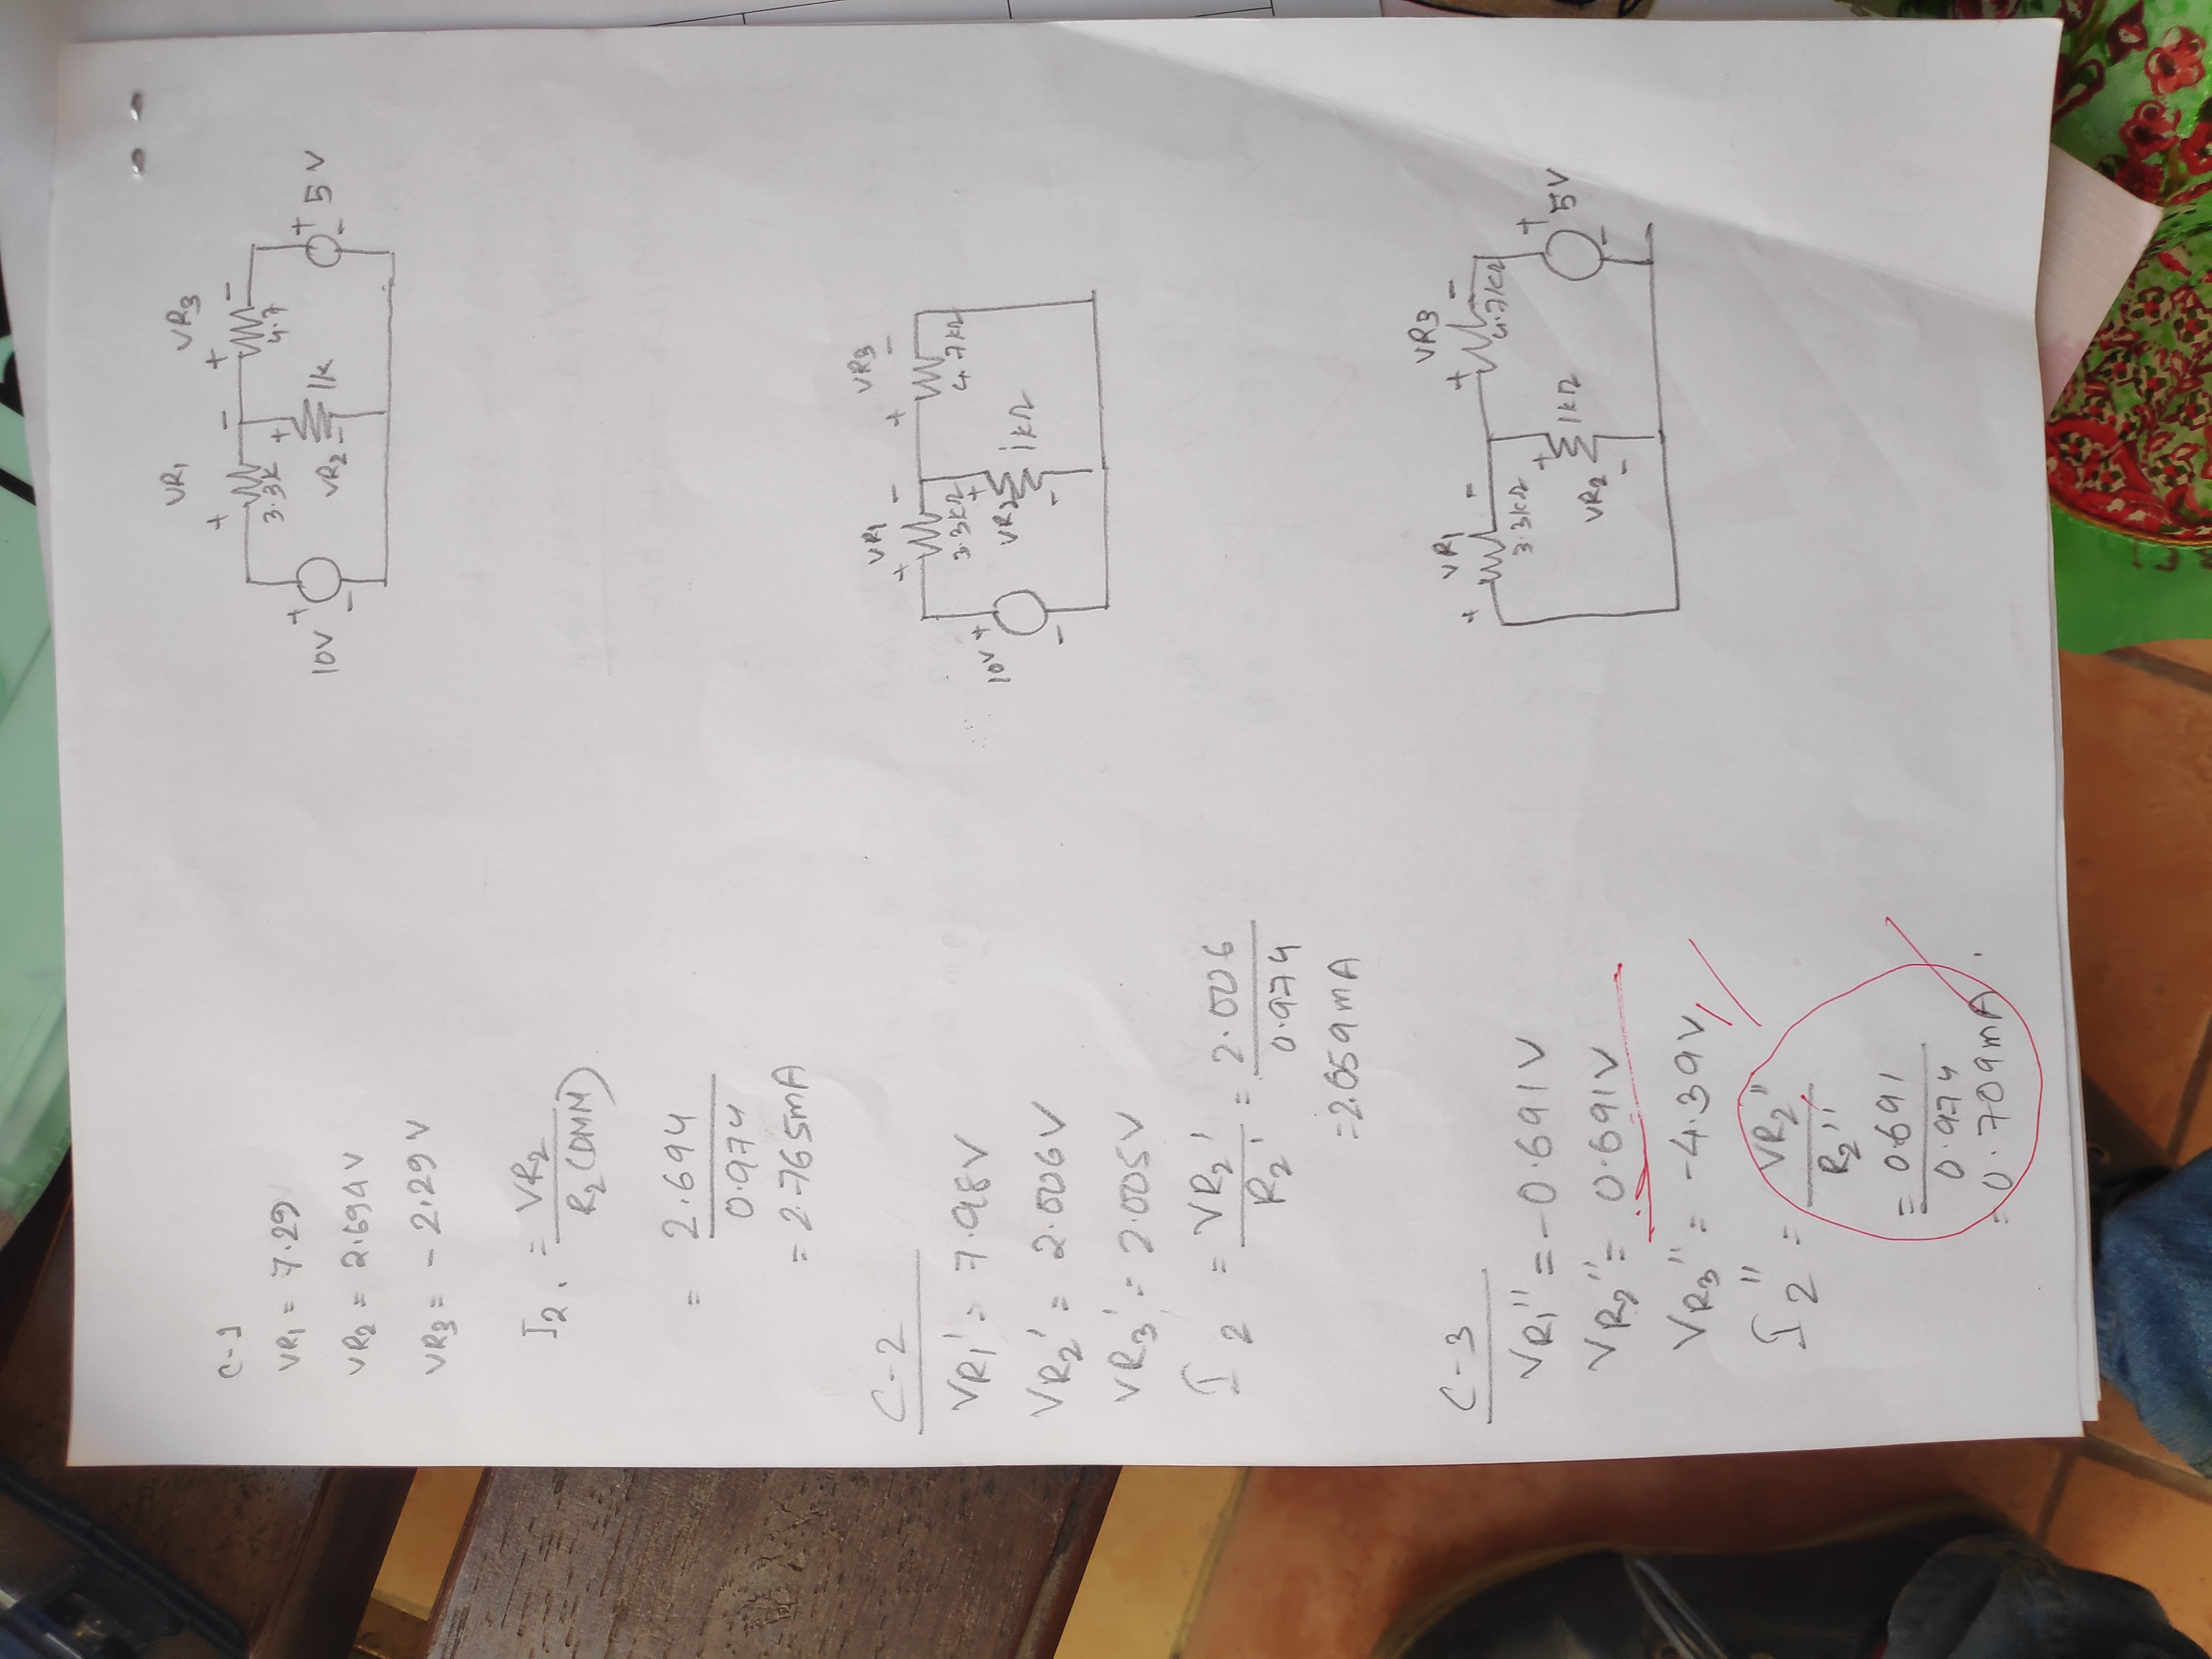 C-1
VR₁ = 7.29
VR₂ = 2.694V
VR₃ = - 2.29 V
I₂. = VR₂
R₂ (DMM)
= 2.694
0.974
= 2.765mA
VR₁ VR₃
+ - + -
3.3K 4.7
10V + - VR₂ + - 1k + - 5V
C-2
VR₁' = 7.98V
VR₂' = 2.006V
VR₃' = 2.005V
I₂ = VR₂' = 2.006
R₂' 0.974
=2.059mA
VR₁ VR₃
+ - + -
3.3KΩ 4.7KΩ
10V + - VR₂ + - 1KΩ
C-3
VR₁'' = -0.691V
VR₂'' = 0.691V
VR₃'' = -4.39V
I₂'' = VR₂''
R₂''
= 0.691
0.974
= 0.709mA.
VR₁ VR₃
+ - + -
3.3KΩ 4.7KΩ
VR₂ + - 1KΩ + - 5V